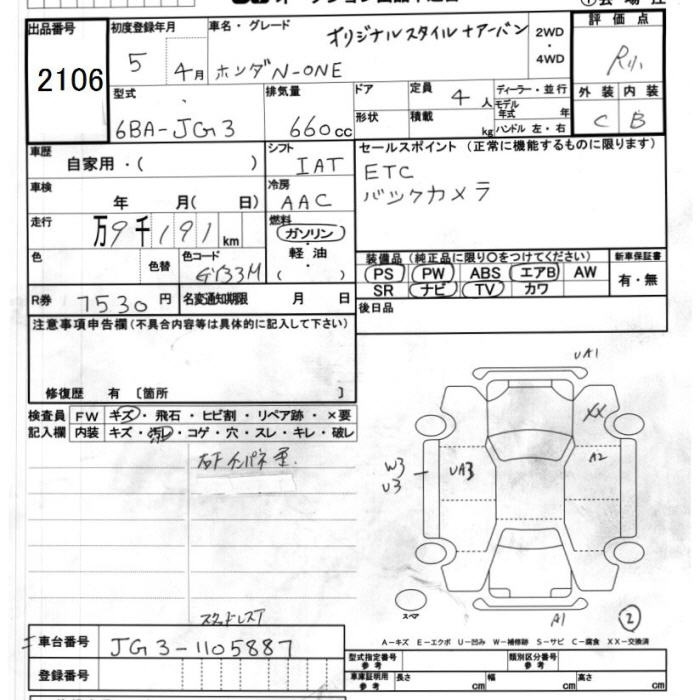 出品番号 初度登録年月 車名・グレード オリジナルスタイル+アーバン 2WD ・ 4WD 評価点
2106 5 4月 ホンダ N-ONE R小
型式 排気量 ドア 定員 4人 ディーラー・並行 外装 内装
6BA-JG3 660cc 形状 積載 kg モデル年式 年 ハンドル 左・右 C B
車歴 自家用・( ) シフト IAT セールスポイント (正常に機能するものに限ります)
車検 年 月( 日) 冷房 AAC ETC
走行 万9千191km 燃料 ガソリン バックカメラ
色 色替 色コード 軽油 ・ ( ) 装備品 (純正品に限り〇をつけてください) 新車保証書
GY33M PS PW ABS エアB AW 有・無
R券 7530円 名変通知期限 月 日 SR ナビ TV カワ
注意事項申告欄(不具合内容等は具体的に記入して下さい) 後日品
修復歴 有 〔箇所 〕
検査員 FW キズ・飛石・ヒビ割・リペア跡・×要
記入欄 内装 キズ・汚レ・コゲ・穴・スレ・キレ・破レ
UA1
XX
A2
W3
U3
UA3
A1
②
スペア
スタッドレスT
A-キズ E-エクボ U-凹み W-補修跡 S-サビ C-腐食 XX-交換済
車台番号 JG3-1105887 型式指定番号 参考 類別区分番号 参考
登録番号 車庫証明用 参考 長さ cm 幅 cm 高さ cm